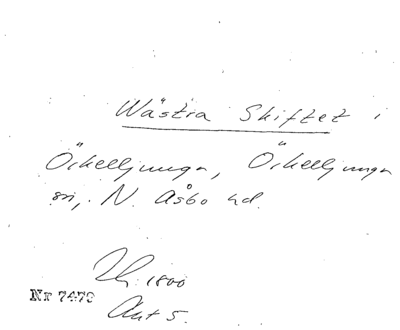 Wästra Skiftet i
Örkelljunga, Örkelljunga
sn, N. Åsbo hd.
1800
Nr 7479
Akt 5.